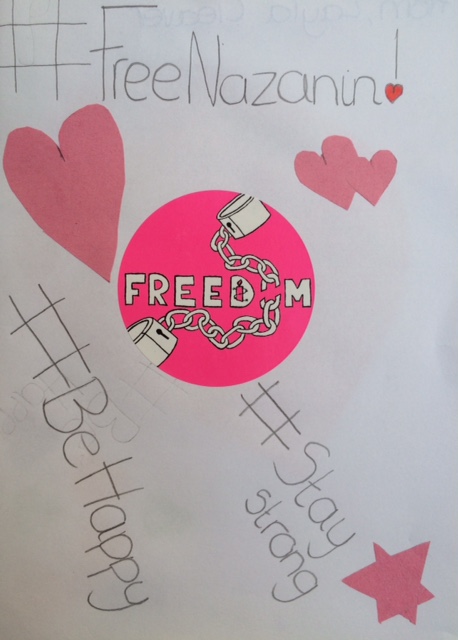 #FreeNazanin!
FREEDOM
#BeHappy
#Stay
strong